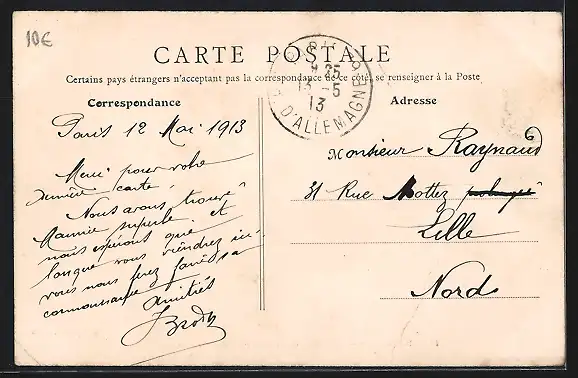 10€
CARTE POSTALE
Certains pays étrangers n'acceptant pas la correspondance de ce côté, se renseigner à la Poste
Correspondance
Adresse
9 35
13 - 5
13
D'ALLEMAGNE
Paris 12 Mai 1913
Merci pour votre
dernière carte.
Nous avons trouvé
superbe et
nous espérons que
lorsque vous viendrez ici
vous nous ferez faire sa
connaissance
Amitiés
Monsieur Raynaud
31 Rue Mottez prolongée
Lille
Nord